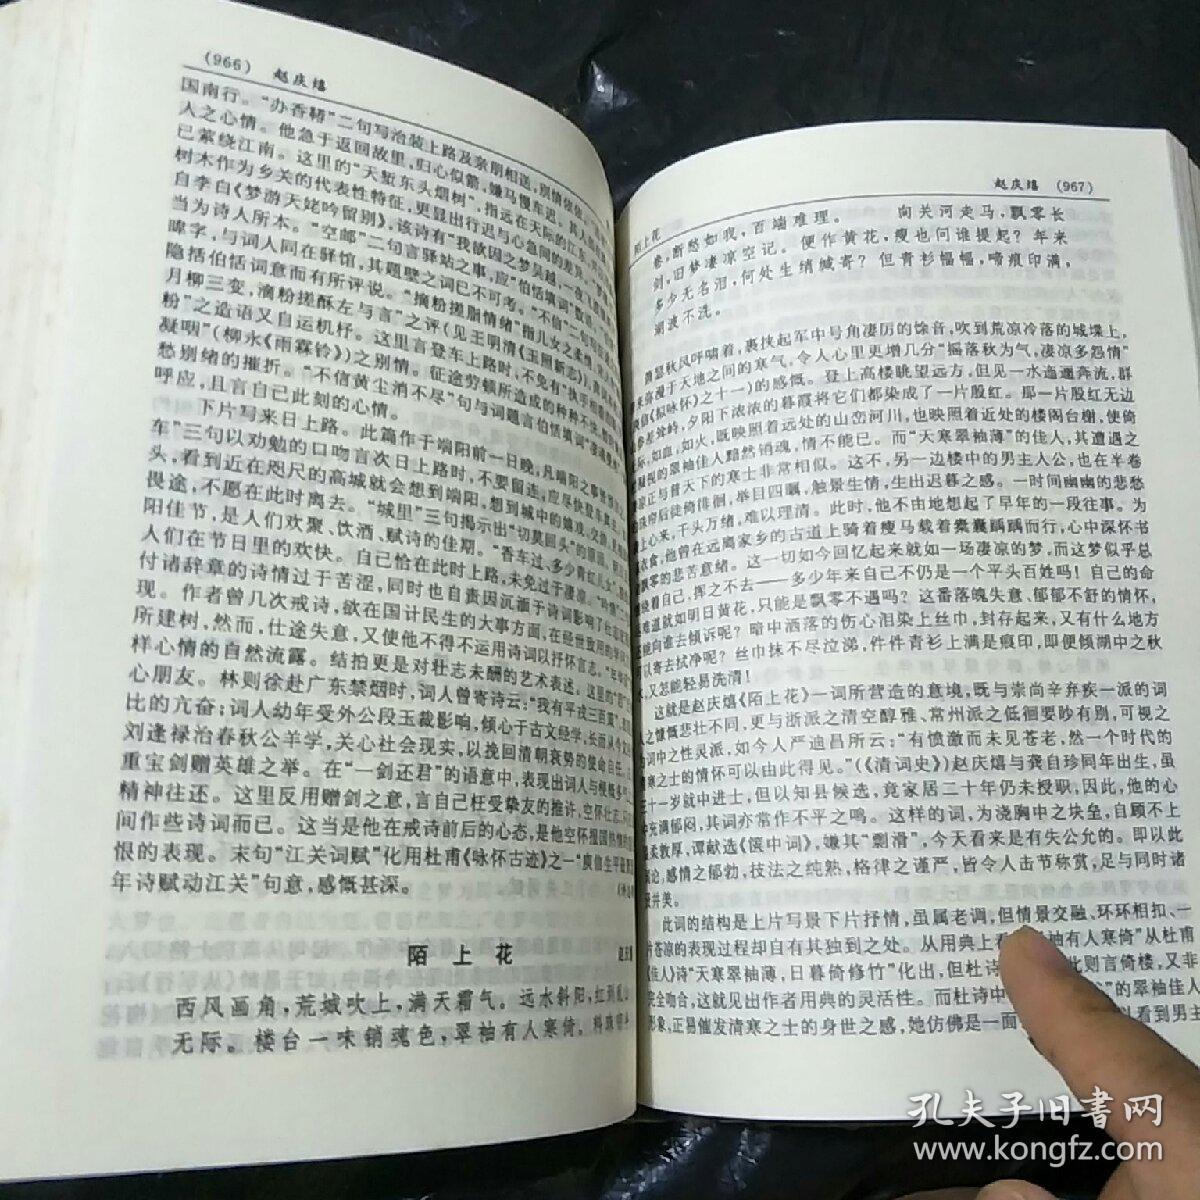 (966) 赵庆熺
国南行。“办香鞯”二句写治装上路及亲朋相送，别情依依
人之心情。他急于返回故里，归心似箭，嫌马慢车迟。其人
已萦绕江南。这里的“天堑东头烟树”，指远在天际的江东
树木作为乡关的代表性特征，更显出行迟与心急间的差异
自李白《梦游天姥吟留别》，该诗有“我欲因之梦吴越，一夜飞
当为诗人所本。“空邮”二句言驿站之事，应“伯恬填词”数
暐字，与词人同在驿馆，其题壁之词已不可考。“不信”一句
隐括伯恬词意而有所评说。“摘粉搓脂情绪”指儿女之柔情
月柳三变，滴粉搓酥左与言”之评（见王明清《玉照新志》）
粉”之造语又自运机杼。这里言登车上路时，不免有“执手
凝咽”（柳永《雨霖铃》）之别情。征途劳顿所造成的种种不快
愁别绪的摧折。“不信黄尘消不尽”句与词题言伯恬填词
呼应，且言自己此刻的心情。
下片写来日上路。此篇作于端阳前一日晚，凡端阳之事
车”三句以劝勉的口吻言次日上路时，不要留连，应尽快登
头，看到近在咫尺的高城就会想到端阳，想到城中的嬉戏、交游
畏途，不愿在此时离去。“城里”三句揭示出“切莫回头”的原因
阳佳节，是人们欢聚、饮酒、赋诗的佳期。“香车过，多少青红儿女”
人们在节日里的欢快。自己恰在此时上路，未免过于凄凉。
付诸辞章的诗情过于苦涩，同时也自责因沉湎于诗词影响了
现。作者曾几次戒诗，欲在国计民生的大事方面，在经世致用的
所建树，然而，仕途失意，又使他不得不运用诗词以抒怀言志。
样心情的自然流露。结拍更是对壮志未酬的艺术表述。这里的“君”
心朋友。林则徐赴广东禁烟时，词人曾寄诗云：“我有平戎三百篇”
比的亢奋；词人幼年受外公段玉裁影响，倾心于古文经学，长而从
刘逢禄治春秋公羊学，关心社会现实，以挽回清朝衰势的使命自任
重宝剑赠英雄之举。在“一剑还君”的语意中，表现出词人与
精神往还。这里反用赠剑之意，言自己枉受挚友的推许，空怀壮志
间作些诗词而已。这当是他在戒诗前后的心态，是他空怀报国热情
恨的表现。末句“江关词赋”化用杜甫《咏怀古迹》之一“庾信生平最萧瑟
年诗赋动江关”句意，感慨甚深。
陌上花
西风画角，荒城吹上，满天霜气。远水斜阳，红到乱山
无际。楼台一味销魂色，翠袖有人寒倚。料珠帘
赵庆熺 (967)
陌上花
卷，断愁如我，百端难理。 向关河走马，飘零长
剑，旧梦凄凉空记。便作黄花，瘦也问谁提起？年来
多少无名泪，何处生绡缄寄？但青衫幅幅，啼痕印满，
湖波不洗。
萧瑟秋风呼啸着，裹挟起军中号角凄厉的馀音，吹到荒凉冷落的城堞上，
来弥漫于天地之间的寒气，令人心里更增几分“摇落秋为气，凄凉多怨情”
信《拟咏怀》之十一）的感慨。登上高楼眺望远方，但见一水迤逦奔流，群
参差耸峙，夕阳下浓浓的暮霞将它们都染成了一片殷红。那一片殷红无边
际，如血，如火，既映照着远处的山峦河川，也映照着近处的楼阁台榭，使倚
凝视的翠袖佳人黯然销魂，情不能已。而“天寒翠袖薄”的佳人，其遭遇之
正与普天下的寒士非常相似。这不，另一边楼中的男主人公，也在半卷
帘后徒倚徘徊，举目四瞩，触景生情，生出迟暮之感。一时间幽幽的悲愁
上心来，千头万绪，难以理清。此时，他不由地想起了早年的一段往事。为
衣食，他曾在远离家乡的古道上骑着瘦马载着橐囊踽踽而行，心中深怀书
飘零的悲苦意绪。这一切如今回忆起来就如一场凄凉的梦，而这梦似乎总
绕着自己，挥之不去——多少年来自己不仍是一个平头百姓吗！自己的命
难道就如明日黄花，只能是飘零不遇吗？这番落魄失意、郁郁不舒的情怀，
能向谁去倾诉呢？暗中洒落的伤心泪染上丝巾，封存起来，又有什么地方
可以寄去拭净呢？丝巾抹不尽泣涕，件件青衫上满是痕印，即便倾湖中之秋
水，又怎能轻易洗清！
这就是赵庆熺《陌上花》一词所营造的意境，既与崇尚辛弃疾一派的词
人之慷慨悲壮不同，更与浙派之清空醇雅、常州派之低徊要眇有别，可视之
为词中之性灵派，如今人严迪昌所云：“有愤激而未见苍老，然一个时代的
寒士之的情怀可以由此得见。”（《清词史》）赵庆熺与龚自珍同年出生，虽
三十一岁就中进士，但以知县候选，竟家居二十年仍未授职，因此，他的心
中充满郁闷，其词亦常作不平之鸣。这样的词，为浇胸中之块垒，自顾不上
温柔敦厚，谭献选《箧中词》，嫌其“剽滑”，今天看来是有失公允的。即以此
词论，感情之郁勃，技法之纯熟，格律之谨严，皆令人击节称赏，足与同时诸
家并美。
此词的结构是上片写景下片抒情，虽属老调，但情景交融、环环相扣、一
片苍凉的表现过程却自有其独到之处。从用典上看，翠袖有人寒倚”从杜甫
《佳人》诗“天寒翠袖薄，日暮倚修竹”化出，但杜诗 此则言倚楼，又非
完全吻合，这就见出作者用典的灵活性。而杜诗中 ”的翠袖佳人
形象，正易催发清寒之士的身世之感，她仿佛是一面 以看到男主
孔夫子旧书网
www.kongfz.com